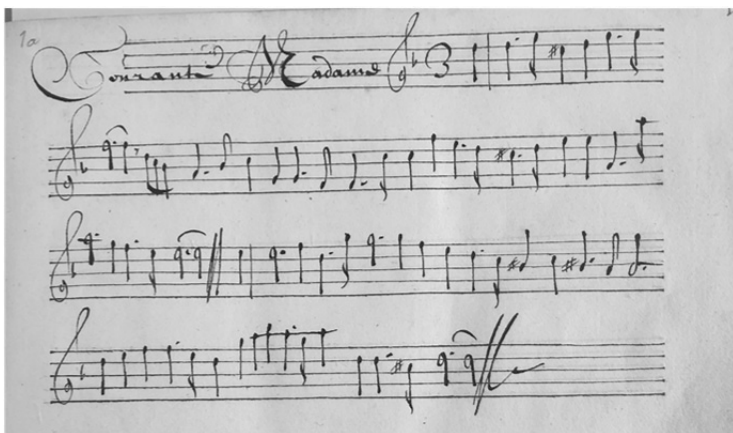 1a
Courante Madame 3